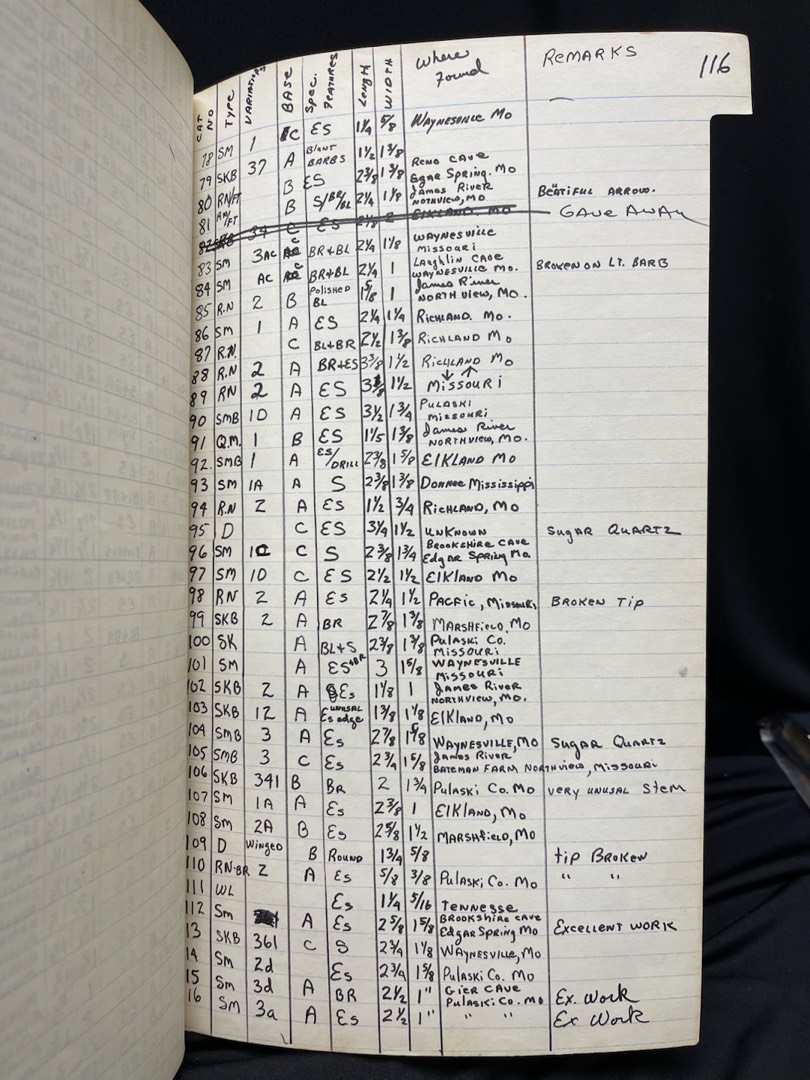 116
CAT NO TYPE VARIATIONS BASE SPEC. FEATURES Length WIDTH Where Found REMARKS
78 SM 1 C ES 1 1/4 5/8 WAYNESVILLE MO
79 SKB 37 A BLUNT BARBS 1 1/2 1 3/8 RENO CAVE
80 RN/FT B ES 2 3/8 1 3/8 Egar Spring. MO
81 RN/FT B S/BR/BL 2 1/4 1 1/8 James River NORTHVIEW, MO BEATIFUL ARROW.
82 SKB 34 C ES 2 1/8 2 ELKLAND MO GAVE AWAY
83 SM 3AC C BR+BL 2 1/4 1 1/8 WAYNESVILLE MISSOURI
84 SM AC C BR+BL 2 1/4 1 Laughlin CAVE WAYNESVILLE MO. BROKEN ON LT. BARB
85 R.N 2 B POLISHED BL 1 5/8 1 James River NORTH VIEW, MO.
86 SM 1 A ES 2 1/4 1 1/4 RICHLAND. MO.
87 R.N. C BL+BR 2 1/2 1 3/8 RICHLAND MO
88 R.N 2 A BR+ES 3 3/8 1 1/2 RICHLAND MO
89 RN 2 A ES 3 1/8 1 1/2 MISSOURI
90 SMB 1D A ES 3 1/2 1 3/4 PULASKI MISSOURI
91 Q.M. 1 B ES 1 1/5 1 3/8 James River NORTHVIEW, MO.
92. SMB 1 A ES/DRILL 2 3/8 1 5/8 ElKLAND MO
93 SM 1A A S 2 3/8 1 3/8 Donnoe Mississippi
94 R.N 2 A ES 1 1/2 3/4 RICHLAND, MO
95 D C ES 3 1/4 1 1/2 UNKNOWN SUGAR QUARTZ
96 SM 1C C S 2 3/8 1 3/4 BROOKSHIRE CAVE Edgar Spring Mo
97 SM 1D C ES 2 1/2 1 1/2 ElKLAND MO
98 RN 2 A ES 2 1/4 1 1/2 PACFIC, MISSOURI BROKEN TIP
99 SKB 2 A BR 2 7/8 1 3/8 MARSHFIELD, MO
100 SK A BL+S 2 3/8 1 3/8 PULASKI CO. MISSOURI
101 SM A ES+BR 3 1 5/8 WAYNESVILLE MISSOURI
102 SKB 2 A ES 1 1/8 1 James River NORTHVIEW, MO.
103 SKB 12 A UNUSAL Es edge 1 3/8 1 1/8 ElKLAND, MO
104 SMB 3 A Es 2 7/8 1 5/8 WAYNESVILLE, MO SUGAR QUARTZ
105 SMB 3 C Es 2 3/4 1 5/8 JAMES RIVER BATEMAN FARM NORTHVIEW, MISSOURI
106 SKB 341 B BR 2 1 3/4 PULASKI CO. MO VERY UNUSAL STEM
107 SM 1A A Es 2 3/8 1 ElKLAND, MO
108 Sm 2A B Es 2 5/8 1 1/2 MARSHFIELD, MO
109 D WINGED B ROUND 1 3/4 5/8 tip BROKEN
110 RN-BR 2 A Es 5/8 3/8 PULASKI CO. MO " "
111 WL Es 1 1/4 5/16 TENNESSE
112 Sm A Es 2 5/8 1 5/8 BROOKSHIRE CAVE Edgar Spring MO EXCELLENT WORK
13 SKB 361 C S 2 3/4 1 1/8 WAYNESVILLE, MO
14 Sm 2d Es 2 3/4 1 5/8 PULASKI CO. MO
15 Sm 3d A BR 2 1/2 1" GIER CAVE PULASKI CO. MO Ex. Work
16 Sm 3a A Es 2 1/2 1" " " Ex Work